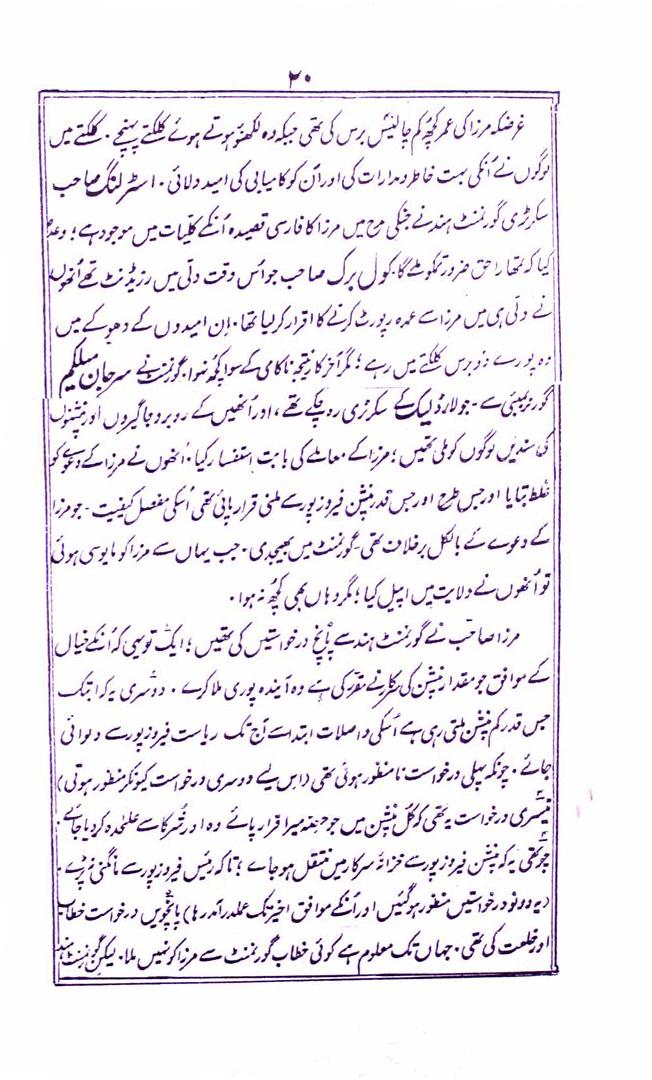 ۲۰
غرضکہ مرزا کی عمر کچھ کم چالیس برس کی تھی جبکہ وہ لکھنؤ ہوتے ہوئے کلکتے پہنچے۔ کلکتے میں
لوگوں نے اُنکی بہت خاطر و مدارات کی اور اُن کو کامیابی کی امید دلائی۔ اسٹرلنگ صاحب
سکرٹری گورنمنٹ ہند نے جنکی مدح میں مرزا کا فارسی قصیدہ اُنکے کلیات میں موجود ہے؛ وعدہ
کیا کہ تمھارا حق ضرور تمکو ملے گا۔ کول برک صاحب جو اُس وقت دلی میں رزیڈنٹ تھے اُنھوں
نے دلی ہی میں مرزا سے عمدہ رپورٹ کرنے کا اقرار کر لیا تھا۔ اِن امیدوں کے دھوکے میں
وہ پورے دو برس کلکتے میں رہے؛ مگر آخرکار نتیجہ ناکامی کے سوا کچھ نہوا۔ گورنمنٹ نے سرجان میلکم
گورنر بمبئی سے۔ جو لارڈ لیک کے سکرٹری رہ چکے تھے، اور اُنھیں کے روبرو جاگیروں اور پنشنوں
کی سندیں لوگوں کو ملی تھیں؛ مرزا کے معاملے کی بابت استفسار کیا۔ اُنھوں نے مرزا کے دعوے کو
غلط بتایا اور جس طرح اور جس قدر پنشن فیروزپور سے ملنی قرار پائی تھی اُسکی مفصل کیفیت۔ جو مرزا
کے دعوے کے بالکل برخلاف تھی۔ گورنمنٹ میں بھیجدی۔ جب یہاں سے مرزا کو مایوسی ہوئی
تو اُنھوں نے ولایت میں اپیل کیا؛ مگر وہاں بھی کچھ نہ ہوا۔
مرزا صاحب نے گورنمنٹ ہند سے پانچ درخواستیں کی تھیں؛ ایک تو یہی کہ اُنکے خیال
کے موافق جو مقدار پنشن کی سرکار نے مقرر کی ہے وہ آیندہ پوری ملا کرے۔ دوسری یہ کہ ابتک
جس قدر کم پنشن ملتی رہی ہے اُسکی واصلات ابتدا سے آج تک ریاست فیروزپور سے دلوائی
جائے۔ چونکہ پہلی درخواست نامنظور ہوئی تھی (اس لیے دوسری درخواست کیونکر منظور ہوتی)
تیسری درخواست یہ تھی کہ کُل پنشن میں جو حصہ میرا قرار پائے وہ اور شُرکا سے علٰحدہ کر دیا جائے۔
چوتھی یہ کہ پنشن فیروزپور سے خزانۂ سرکار میں منتقل ہو جاے؛ تاکہ رئیس فیروزپور سے مانگنی نہ پڑے۔
(یہ دونو درخواستیں منظور ہو گئیں اور اُنکے موافق اخیر تک عملدرآمد رہا) پانچویں درخواست خطاب
اور خلعت کی تھی۔ جہاں تک معلوم ہے کوئی خطاب گورنمنٹ سے مرزا کو نہیں ملا۔ لیکن گورنمنٹ ہند